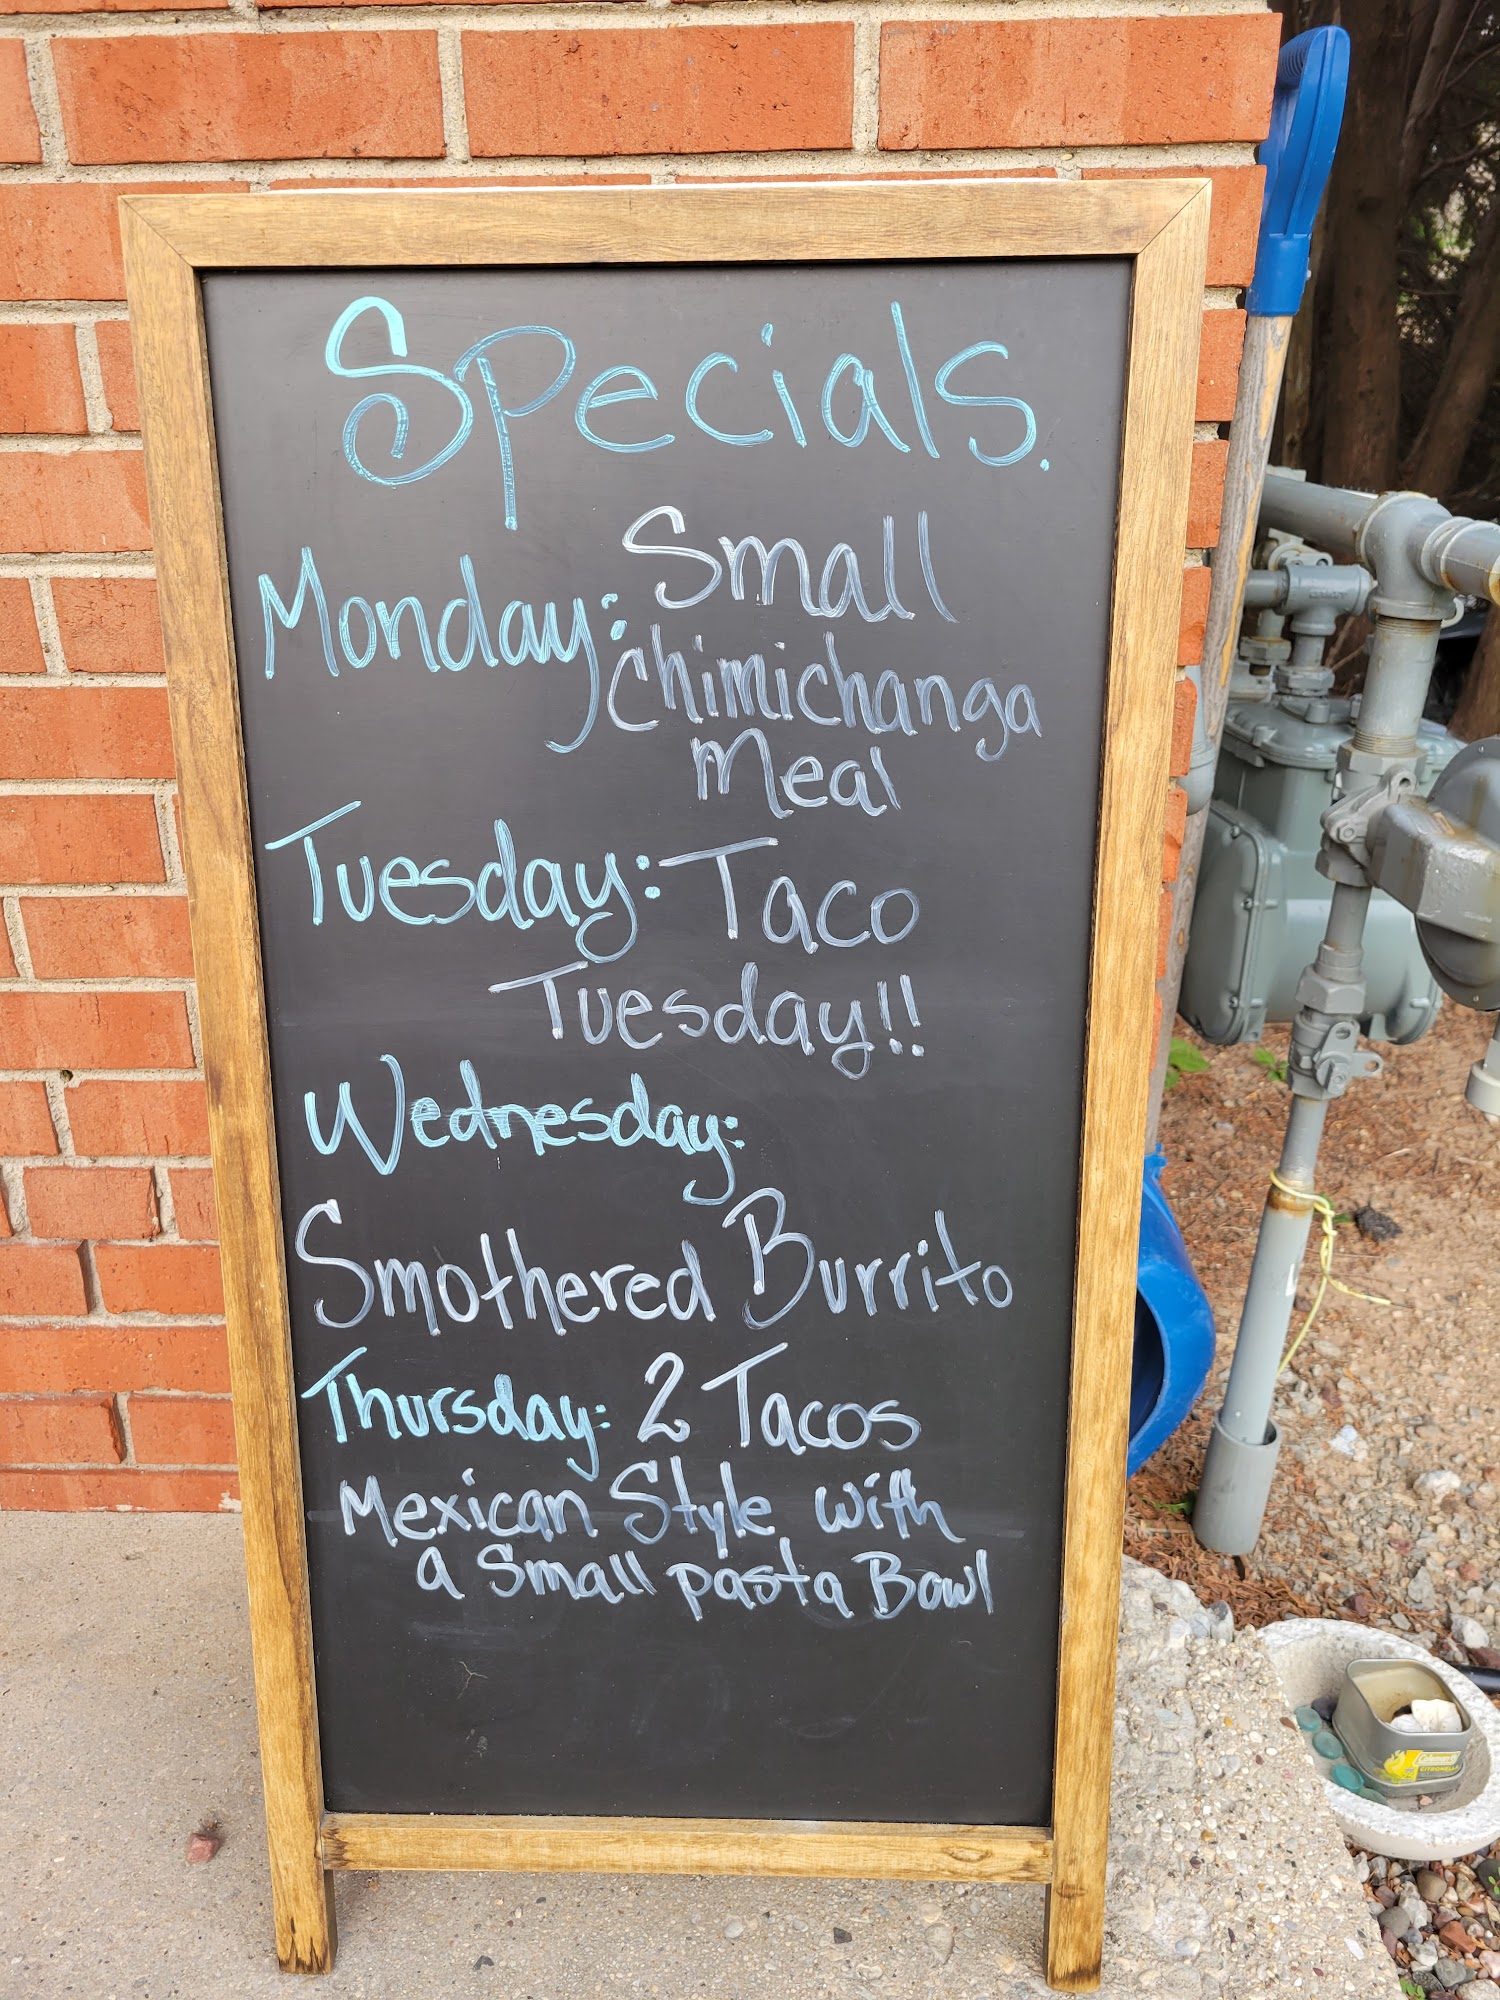 Specials.
Monday: Small
Chimichanga
Meal
Tuesday: Taco
Tuesday!!
Wednesday:
Smothered Burrito
Thursday: 2 Tacos
Mexican Style with
a Small pasta Bowl
Coleman
CITRONELLA